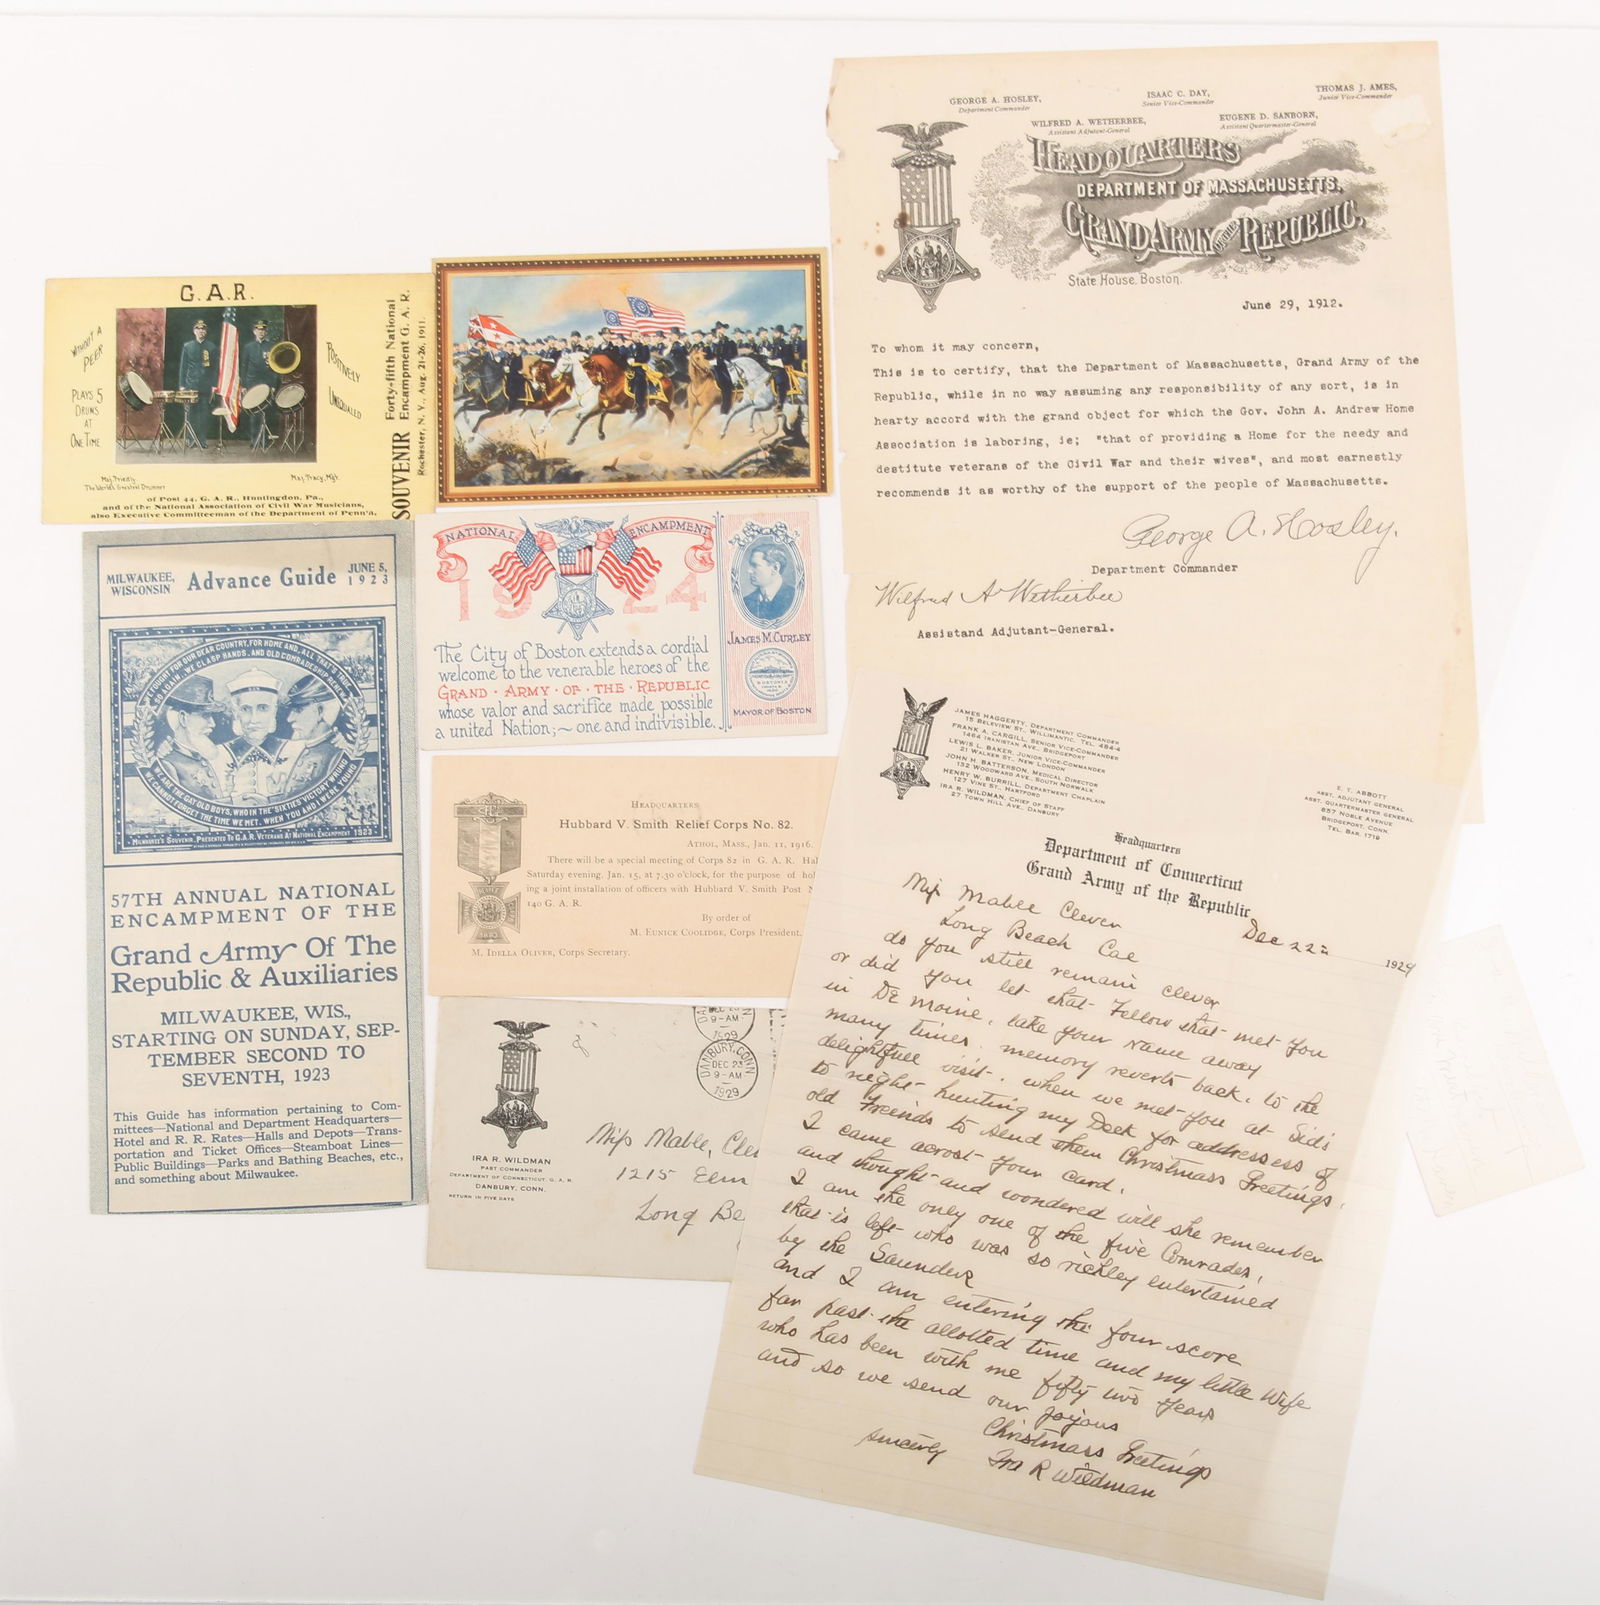 G.A.R.
WITHOUT A
PEER
PLAYS 5
DRUMS
AT
ONE TIME
POSITIVELY
UNEQUALED
Maj. Priestly
The World's Greatest Drummer
Maj. Tracy, Mgr.
of Post 44, G. A. R., Huntingdon, Pa.,
and of the National Association of Civil War Musicians,
also Executive Committeeman of the Department of Penn'a.
SOUVENIR
Forty-fifth National
Encampment G. A. R.
Rochester, N. Y., Aug. 21-26, 1911.
MILWAUKEE,
WISCONSIN
Advance Guide
JUNE 5,
1923
WE FOUGHT FOR OUR DEAR COUNTRY, FOR HOME AND ALL THAT'S TRUE
SO AGAIN, WE CLASP HANDS, AND OLD COMRADESHIP RENEW
WE ARE THE GAY OLD BOYS, WHO IN THE "SIXTIES" VICTORY WRUNG
WE CANNOT FORGET THE TIME WE MET, WHEN YOU AND I WERE YOUNG
MILWAUKEE'S SOUVENIR, PRESENTED TO G.A.R. VETERANS AT NATIONAL ENCAMPMENT 1923
57TH ANNUAL NATIONAL
ENCAMPMENT OF THE
Grand Army Of The
Republic & Auxiliaries
MILWAUKEE, WIS.,
STARTING ON SUNDAY, SEP-
TEMBER SECOND TO
SEVENTH, 1923
This Guide has information pertaining to Com-
mittees—National and Department Headquarters—
Hotel and R. R. Rates—Halls and Depots—Trans-
portation and Ticket Offices—Steamboat Lines—
Public Buildings—Parks and Bathing Beaches, etc.,
and something about Milwaukee.
NATIONAL ENCAMPMENT
1924
The City of Boston extends a cordial
welcome to the venerable heroes of the
GRAND · ARMY · OF · THE · REPUBLIC
whose valor and sacrifice made possible
a united Nation;~ one and indivisible.
JAMES M. CURLEY
MAYOR OF BOSTON
HEADQUARTERS
Hubbard V. Smith Relief Corps No. 82.
ATHOL, MASS., JAN. 11, 1916.
There will be a special meeting of Corps 82 in G. A. R. Hal
Saturday evening, Jan. 15, at 7.30 o'clock, for the purpose of hol
ing a joint installation of officers with Hubbard V. Smith Post N
140 G. A. R.
By order of
M. EUNICE COOLIDGE, Corps President.
M. IDELLA OLIVER, Corps Secretary.
1883
9-AM
1929
DANBURY, CONN.
DEC 23
9-AM
1929
IRA R. WILDMAN
PAST COMMANDER
DEPARTMENT OF CONNECTICUT, G. A. R.
DANBURY, CONN.
RETURN IN FIVE DAYS
Miss Mable, Clev
1215 Elm
Long Be
GEORGE A. HOSLEY,
Department Commander
ISAAC C. DAY,
Senior Vice-Commander
THOMAS J. AMES,
Junior Vice-Commander
WILFRED A. WETHERBEE,
Assistant Adjutant-General
EUGENE D. SANBORN,
Assistant Quartermaster-General
HEADQUARTERS
DEPARTMENT OF MASSACHUSETTS,
GRAND ARMY OF THE REPUBLIC,
State House, Boston.
June 29, 1912.
To whom it may concern,
This is to certify, that the Department of Massachusetts, Grand Army of the
Republic, while in no way assuming any responsibility of any sort, is in
hearty accord with the grand object for which the Gov. John A. Andrew Home
Association is laboring, ie; "that of providing a Home for the needy and
destitute veterans of the Civil War and their wives", and most earnestly
recommends it as worthy of the support of the people of Massachusetts.
George A. Hosley.
Department Commander
Wilfred A Wetherbee
Assistand Adjutant-General.
JAMES HAGGERTY, DEPARTMENT COMMANDER
15 BELLEVIEW ST., WILLIMANTIC. TEL. 484-4
FRANK A. CARGILL, SENIOR VICE-COMMANDER
1464 IRANISTAN AVE., BRIDGEPORT
LEWIS L. BAKER, JUNIOR VICE-COMMANDER
21 WALKER ST., NEW LONDON
JOHN H. BATTERSON, MEDICAL DIRECTOR
132 WOODWARD AVE., SOUTH NORWALK
HENRY W. BURRILL, DEPARTMENT CHAPLAIN
127 VINE ST., HARTFORD
IRA R. WILDMAN, CHIEF OF STAFF
27 TOWN HILL AVE., DANBURY
E. T. ABBOTT
ASST. ADJUTANT GENERAL
ASST. QUARTERMASTER GENERAL
857 NOBLE AVENUE
BRIDGEPORT, CONN.
TEL. BAR. 1719
Headquarters
Department of Connecticut
Grand Army of the Republic
Miss Mable Clever
Dec 22 1929
Long Beach Cal
do you still remain clever
or did you let that Fellow that met you
in De Moine, take your name away
many times. memory reverts back. to the
delightfull visit. when we met you at Sid's
to night hunting my Desk for addressess of
old Freinds to send them Christmass Greetings,
I came acrost your card.
and thought and wondered will she remember
I am the only one of the five Comrades,
that is left who was so richley entertained
by the Saunders
and I am entering the four score
far past the allotted time and my little wife
who has been with me fifty two years
and so we send our joyous
Christmass Greetings
sincerly Ira R Wildman